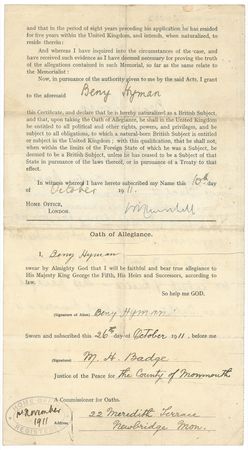 and that in the period of eight years preceding his application he has resided
for five years within the United Kingdom, and intends, when naturalized, to
reside therein:
And whereas I have inquired into the circumstances of the case, and
have received such evidence as I have deemed necessary for proving the truth
of the allegations contained in such Memorial, so far as the same relate to
the Memorialist:
Now, in pursuance of the authority given to me by the said Acts, I grant
to the aforesaid
Beny Hyman
this Certificate, and declare that he is hereby naturalized as a British Subject,
and that, upon taking the Oath of Allegiance, he shall in the United Kingdom
be entitled to all political and other rights, powers, and privileges, and be
subject to all obligations, to which a natural-born British Subject is entitled
or subject in the United Kingdom; with this qualification, that he shall not,
when within the limits of the Foreign State of which he was a Subject, be
deemed to be a British Subject, unless he has ceased to be a Subject of that
State in pursuance of the laws thereof, or in pursuance of a Treaty to that
effect.
In witness whereof I have hereto subscribed my Name this 10th
day of October 1911.
HOME OFFICE,
LONDON.
Oath of Allegiance.
I, Beny Hyman
swear by Almighty God that I will be faithful and bear true allegiance to
His Majesty King George the Fifth, His Heirs and Successors, according to
law.
So help me GOD.
(Signature of Alien) Beny Hyman
Sworn and subscribed this 26th day of October 1911, before me
(Signature) M. H. Badge
Justice of the Peace for The County of Monmouth
A Commissioner for Oaths.
Address 22 Meredith Terrace
Newbridge Mon.
HOME OFFICE
November
1911
REGISTERED